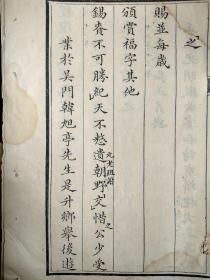 之
賜並每歲
頒賞福字其他
錫賚不可勝紀天不慭遺朝野交惜之公少受
業於吳門韓旭亭先生是升鄉舉後遊